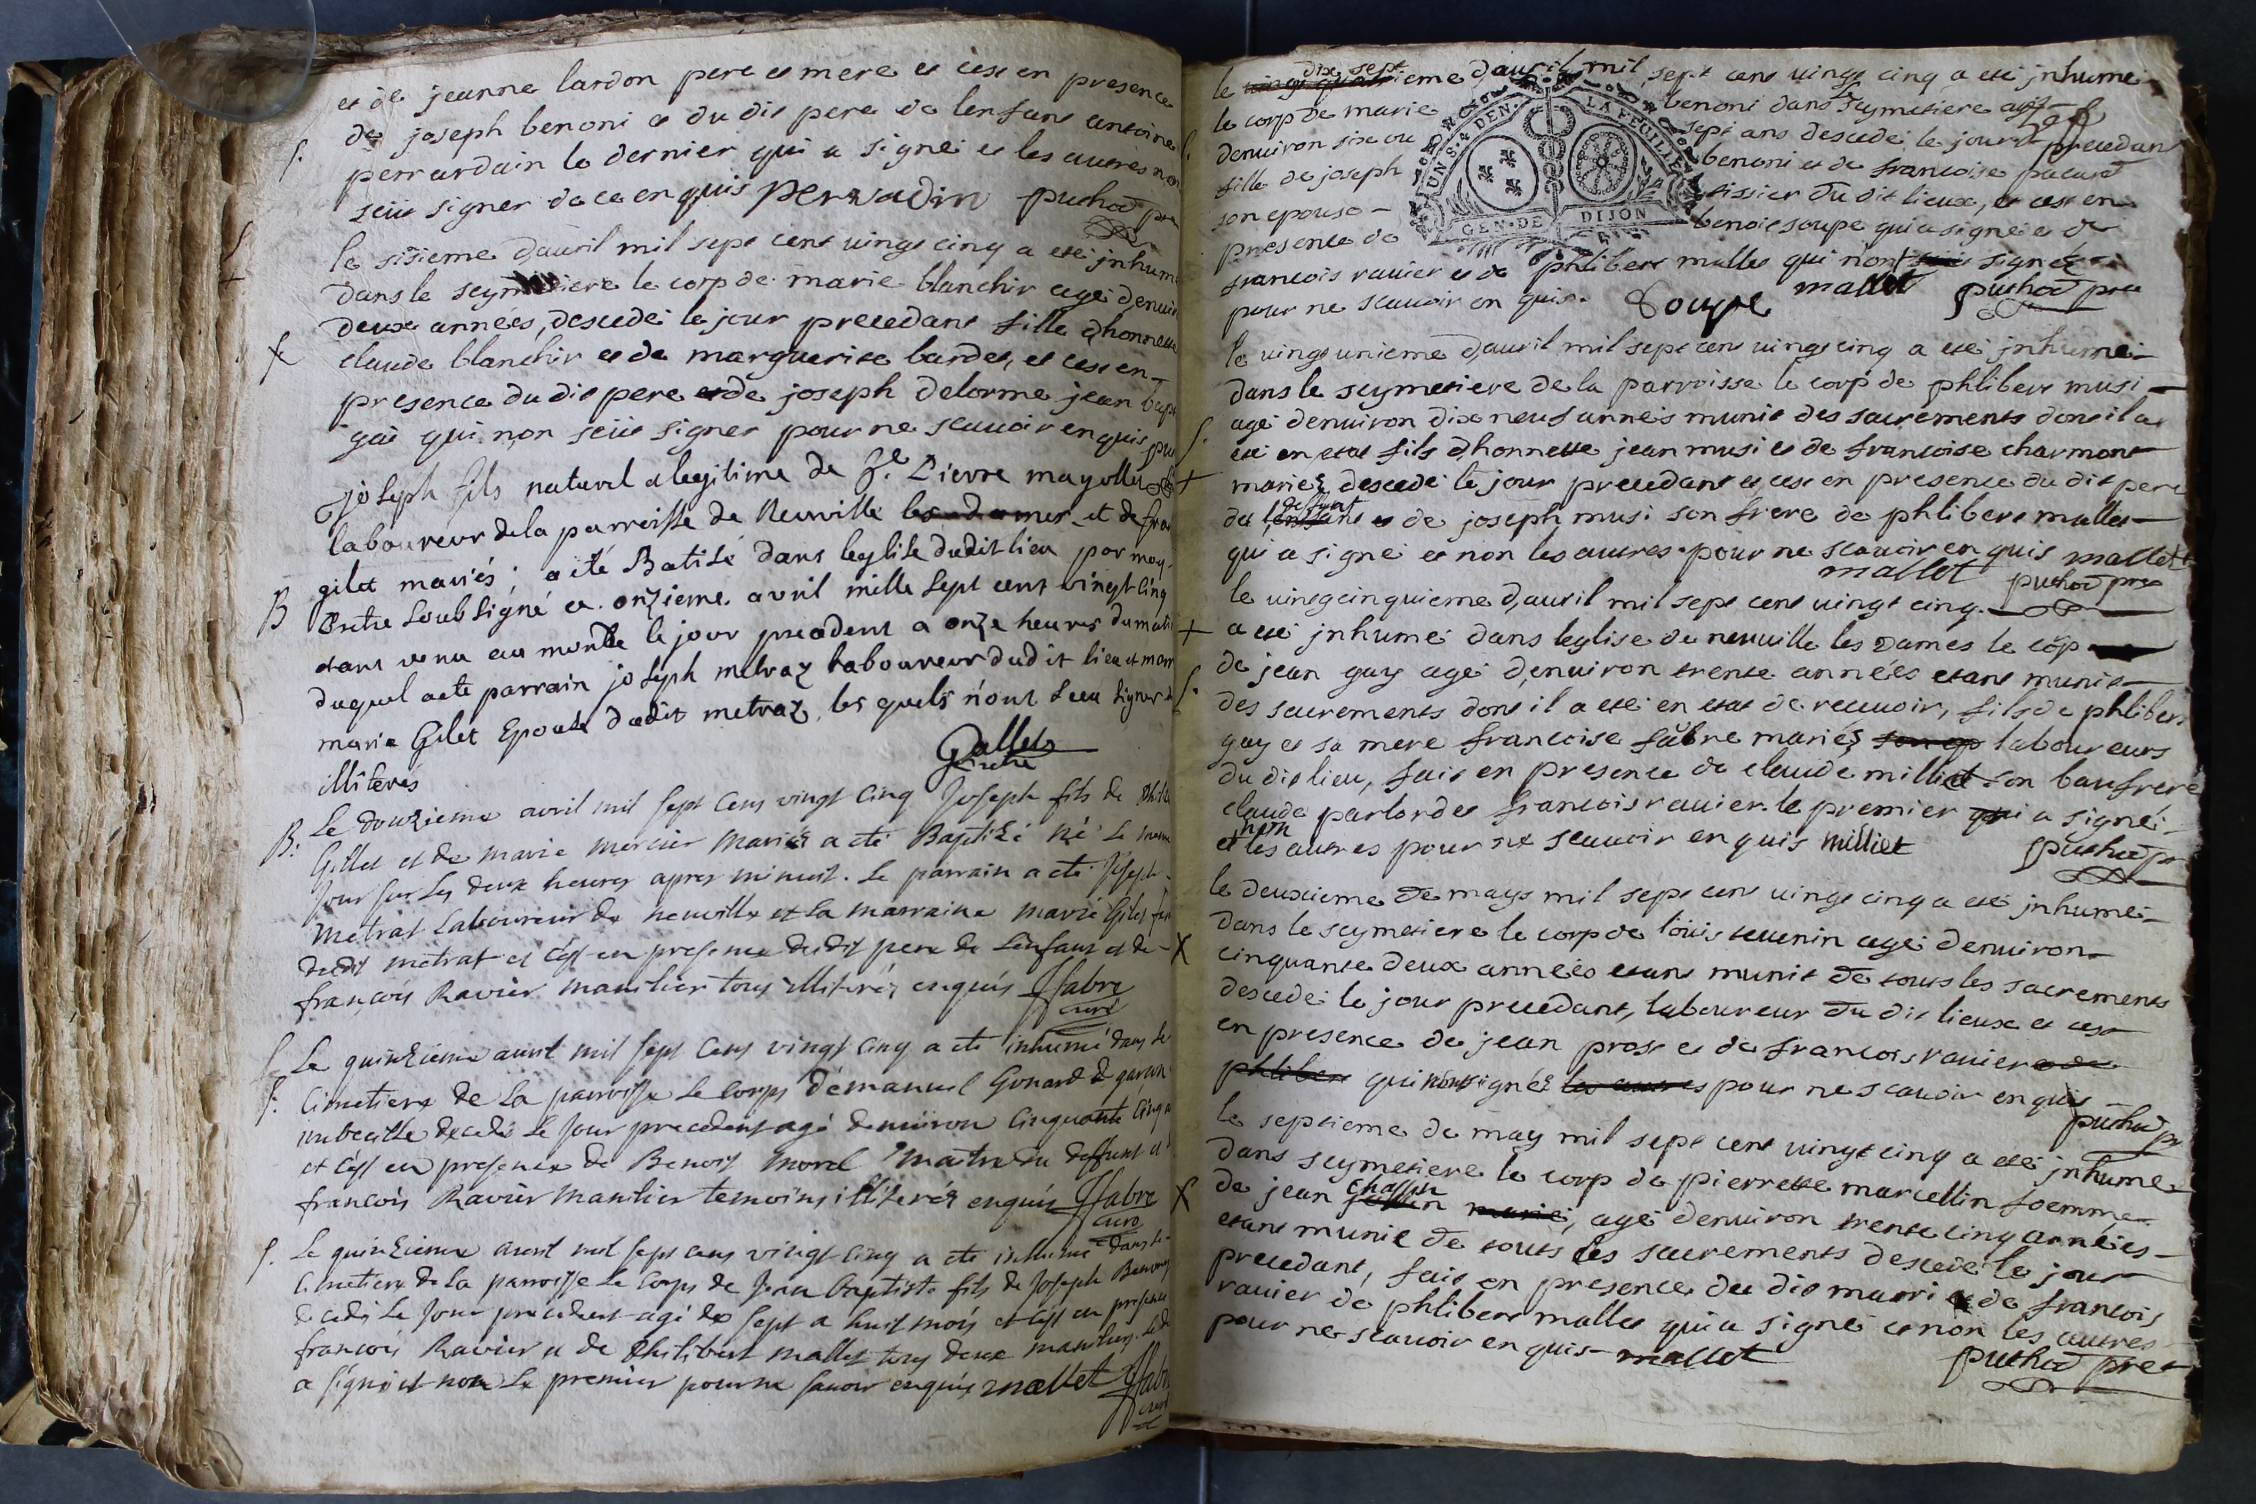 et de jeanne lardon pere et mere et cest en presence
de joseph benoni et du dit pere de lenfant antoine
S. perrardain le dernier qui a signé et les autres non
seüe signer de ce enquis perradin puthod pre
le sisieme davril mil sept cent vingt cinq a eté jnhumé
dans le seymetiere le corp de marie blanchir agé denviron
deux années, descedé le jour precedant fille dhonneste
claude blanchir et de marguerite bardet, et cest en
presence du dit pere et de joseph delorme jean bapt
gai qui non seüe signer pour ne scavoir enquis
joseph fils naturel a legitime de h.e Pierre mayolles
laboureur de la parroisse de Neuville les dames et de fra
gilet mariés; a eté Batisé dans leglise dudit lieu par moy
B Prêtre soubsigné ce onzieme avril mille sept cent vingt cinq
etant venu au monde le jour precedent a onze heures du matin
duquel a eté parrain joseph metraz laboureur dudit lieu et marr
marie Gilet Epouse dudit metraz, les quels n'ont sceu signer
illiterés Gallet
B. Le douzieme avril mil sept cens vingt cinq Joseph fils de Phili
Gillet et de marie mercier mariés a eté Baptizé né le meme
Jour sur Les deux heures apres minuit. Le parrain a eté Joseph
Metrat Laboureur de neuville et La marraine marie Gilet fe
dudit metrat et c'est en presence dudit pere de L'enfant et de
françois Ravier manilier tous illiterés enquis Ffabre
curé
Le quinzieme avril mil sept cens vingt cinq a eté inhumé dans le
S. Cimetiere de La parroisse Le Corps d'Emanuel Gonard garcon
imbecille decedé Le Jour precedent agé denviron Cinquante Cinq a
et c'est en presence de Benoit morel maitre du deffunt et
françois Ravier manilier temoins illiterés enquis Ffabre
curé
S. Le quinzieme avril mil sept cens vingt cinq a eté inhumé dans le
Cimetiere de la parroisse Le Corps de Jean Baptiste fils de Joseph Benony
decedé Le Jour precedent agé de sept a huit mois et c'est en presence
françois Ravier et de Philibert mallet tous deux maniliers
a signé et non Le premier pour ne savoir enquis mallet Ffabre
curé
le dix sept ieme davril mil sept cent vingt cinq a eté jnhumé
le corp de marie benoni dans seymetiere agé
denviron six ou sept ans descedé le jour precedan
fille de joseph benoni et de francoise pacard
son epouse tissier du dit lieux, et cest en
presence de benoit soupe qui a signé et de
francois ravier et de phlibert mallet qui non signé
pour ne scavoir en quis. Soupe mallet puthod pre
JUNS. 4. DEN. LA FEUILLE
GEN. DE DIJON
le vingt unieme davril mil sept cent vingt cinq a eté jnhumé
dans le seymetiere de la parroisse le corp de phlibert musi
agé denviron dix neuf annés munit des sacréments dont il a
S. eté en etat fils dhonneste jean musi et de francoise charmont
+ mariez descedé le jour precedant et cest en presence du dit pere
du deffunt et de joseph musi son frere de phlibert mallet
qui a signé et non les autres pour ne scavoir en quis mallet
mallet puthod pre
le vingt cinquieme davril mil sept cent vingt cinq
+ a eté jnhumé dans leglise de neuville les dames le corp
S. de jean guy agé denviron trente années etant munit
des sacrements dont il a eté en etat de recevoir, fils de phlibert
guy et sa mere francoise fabre mariéz laboureurs
du dit lieu, fait en presence de claude milliet son baufrere
claude parlordet francois ravier le premier a signé
et non les autres pour ne scavoir en quis milliet puthod pr
le deuxieme de mays mil sept cent vingt cinq a eté jnhumé
dans le seymetiere le corp de loüis tevenin agé denviron
X cinquante deux années etant munit de touts les sacrements
descedé le jour precedant, laboureur du dit lieux et cest
en presence de jean prost et de francois ravier
qui nont signéz pour ne scavoir en quis
puthod pr
le septieme de may mil sept cent vingt cinq a eté jnhumé
dans seymetiere le corp de pierrette marcellin foemme
X de jean chassin, agé denviron trente cinq années
etant munit de touts les sacrements descedé le jour
precedant, fait en presence du dit marri et de francois
ravier de phlibert mallet qui a signé et non les autres
pour ne scavoir en quis mallet puthod pre